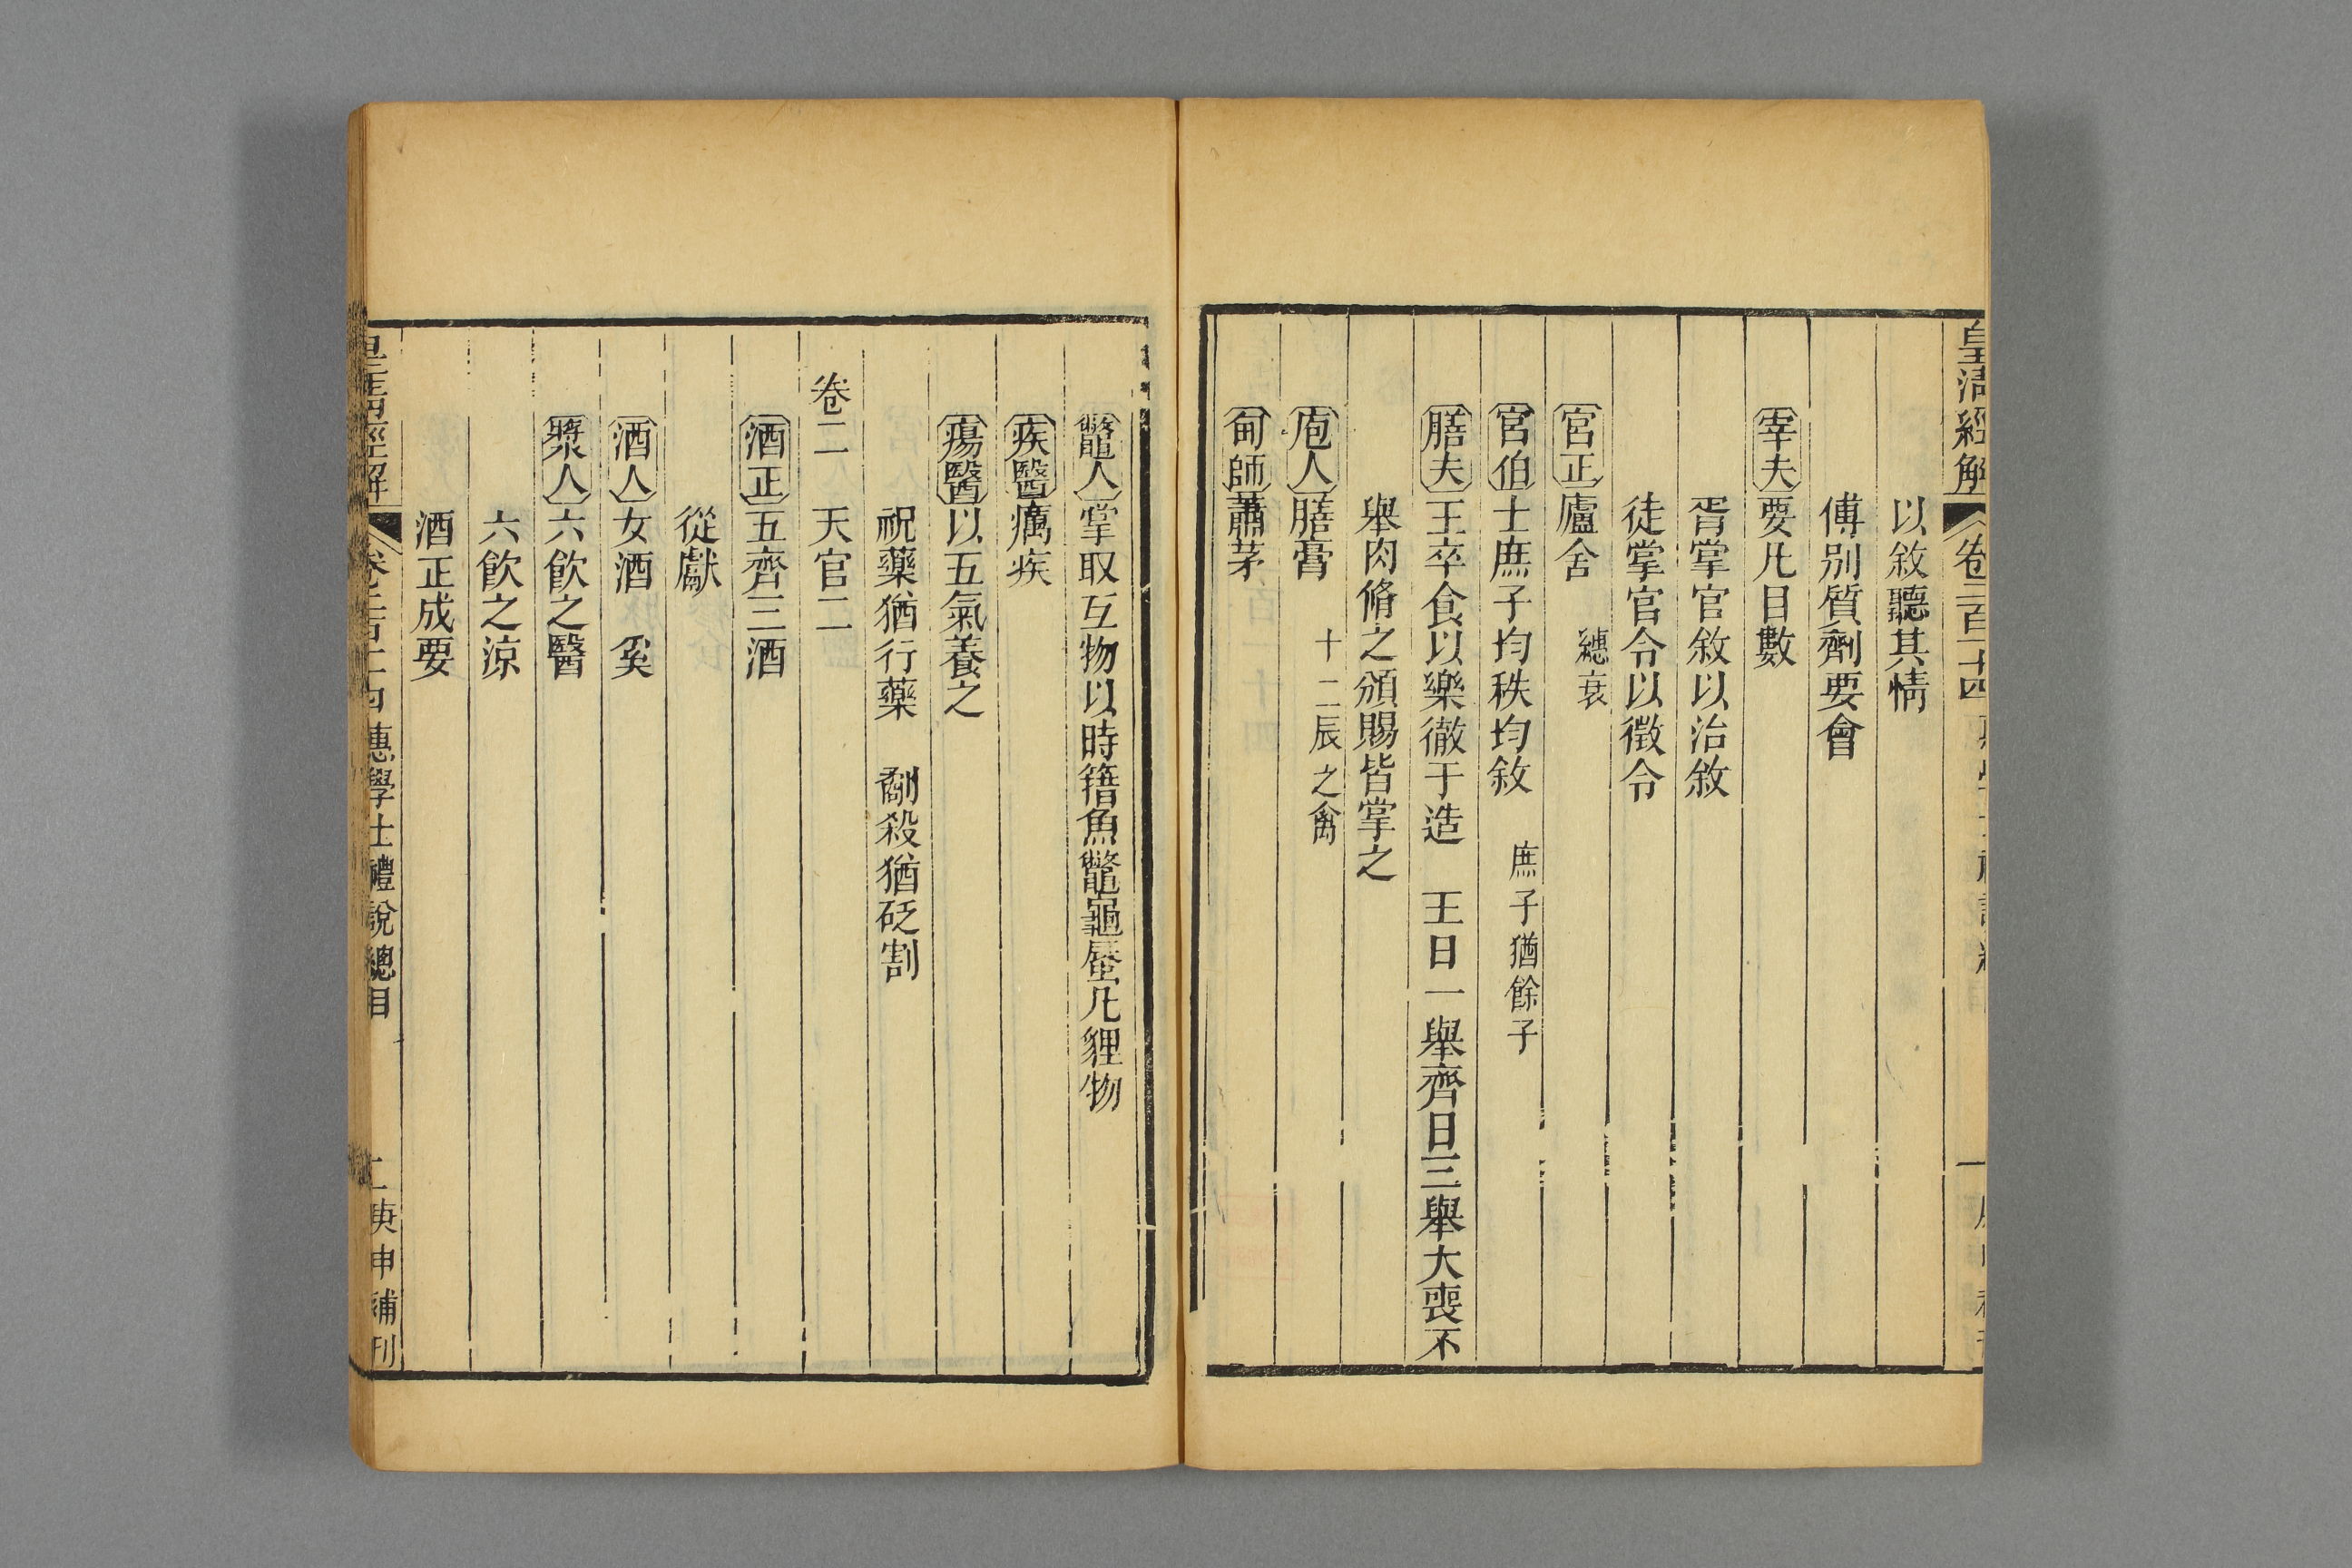 皇清經解 卷二百十四
以敘聽其情
傅别質劑要會
宰夫 要凡目數
胥掌官敘以治敘
徒掌官令以徴令
宮正 廬舍 繐衰
宮伯 士庶子均秩均敘 庶子猶餘子
膳夫 王卒食以樂徹于造 王日一舉齊日三舉大喪不
舉肉脩之頒賜皆掌之
庖人 膳膏 十二辰之禽
甸師 蕭茅
鼈人 掌取互物以時簎魚鼈龜蜃凡貍物
疾醫 癘疾
瘍醫 以五氣養之
祝藥猶行藥 劀殺猶砭割
卷二 天官二
酒正 五齊三酒
從獻
酒人 女酒 奚
漿人 六飲之醫
六飲之涼
酒正成要
皇清經解 卷二百十四 惠學士禮說總目 二 庚申補刊